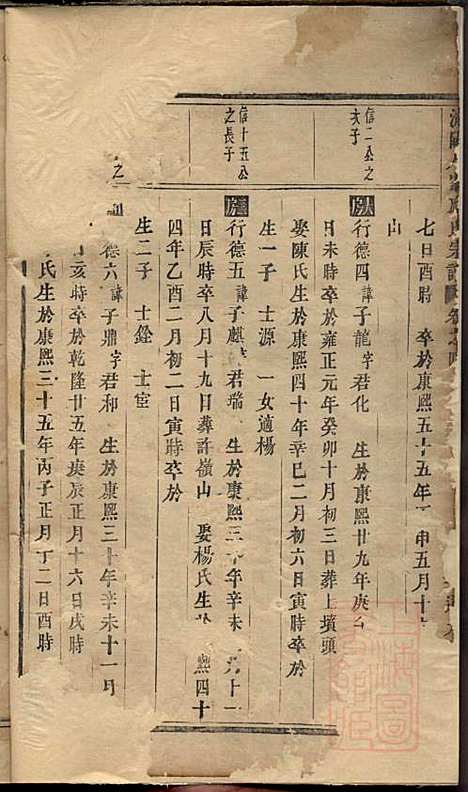 七日酉時 卒於康熙五十五年 申五月十
山
信二公之
次子
行德四諱子龍字君化 生於康熙廿九年庚午
日未時卒於雍正元年癸卯十月初三日葬上墳頭
娶陳氏生於康熙四十年辛巳二月初六日寅時卒於
生一子 士源 一女適楊
信十五公
之長子
行德五諱子麒 君瑞 生於康熙三十年辛未 十一
日辰時卒八月十九日葬許嶺山 娶楊氏生於 熙四十
四年乙酉二月初二日寅時卒於
生二子 士銓 士宝
之
德六諱子鼎字君和 生於康熙三十年辛未十一月
亥時卒於乾隆廿五年庚辰正月十六日戌時
氏生於康熙三十五年丙子正月 二日酉時